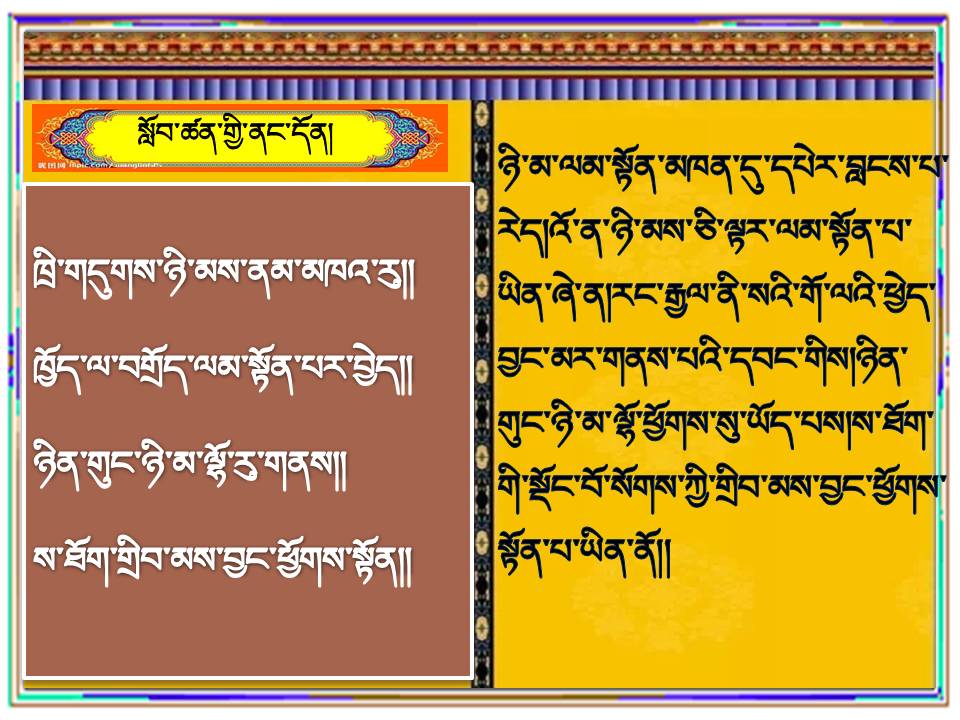 སློབ་ཚན་གྱི་ནང་དོན།
ཁྲི་གདུགས་ཉི་མས་ནམ་མཁའ་རུ།།
ཁྱོད་ལ་བགྲོད་ལམ་སྟོན་པར་བྱེད།།
ཉིན་གུང་ཉི་མ་ལྷོ་རུ་གནས།།
ས་ཐོག་གྲིབ་མས་བྱང་ཕྱོགས་སྟོན།།
ཉི་མ་ལམ་སྟོན་མཁན་དུ་དཔེར་བླངས་པ་
རེད།འོ་ན་ཉི་མས་ཅི་ལྟར་ལམ་སྟོན་པ་
ཡིན་ཞེ་ན།རང་རྒྱལ་ནི་སའི་གོ་ལའི་ཕྱེད་
བྱང་མར་གནས་པའི་དབང་གིས།ཉིན་
གུང་ཉི་མ་ལྷོ་ཕྱོགས་སུ་ཡོད་པས།ས་ཐོག་
གི་སྡོང་བོ་སོགས་ཀྱི་གྲིབ་མས་བྱང་ཕྱོགས་
སྟོན་པ་ཡིན་ནོ།།